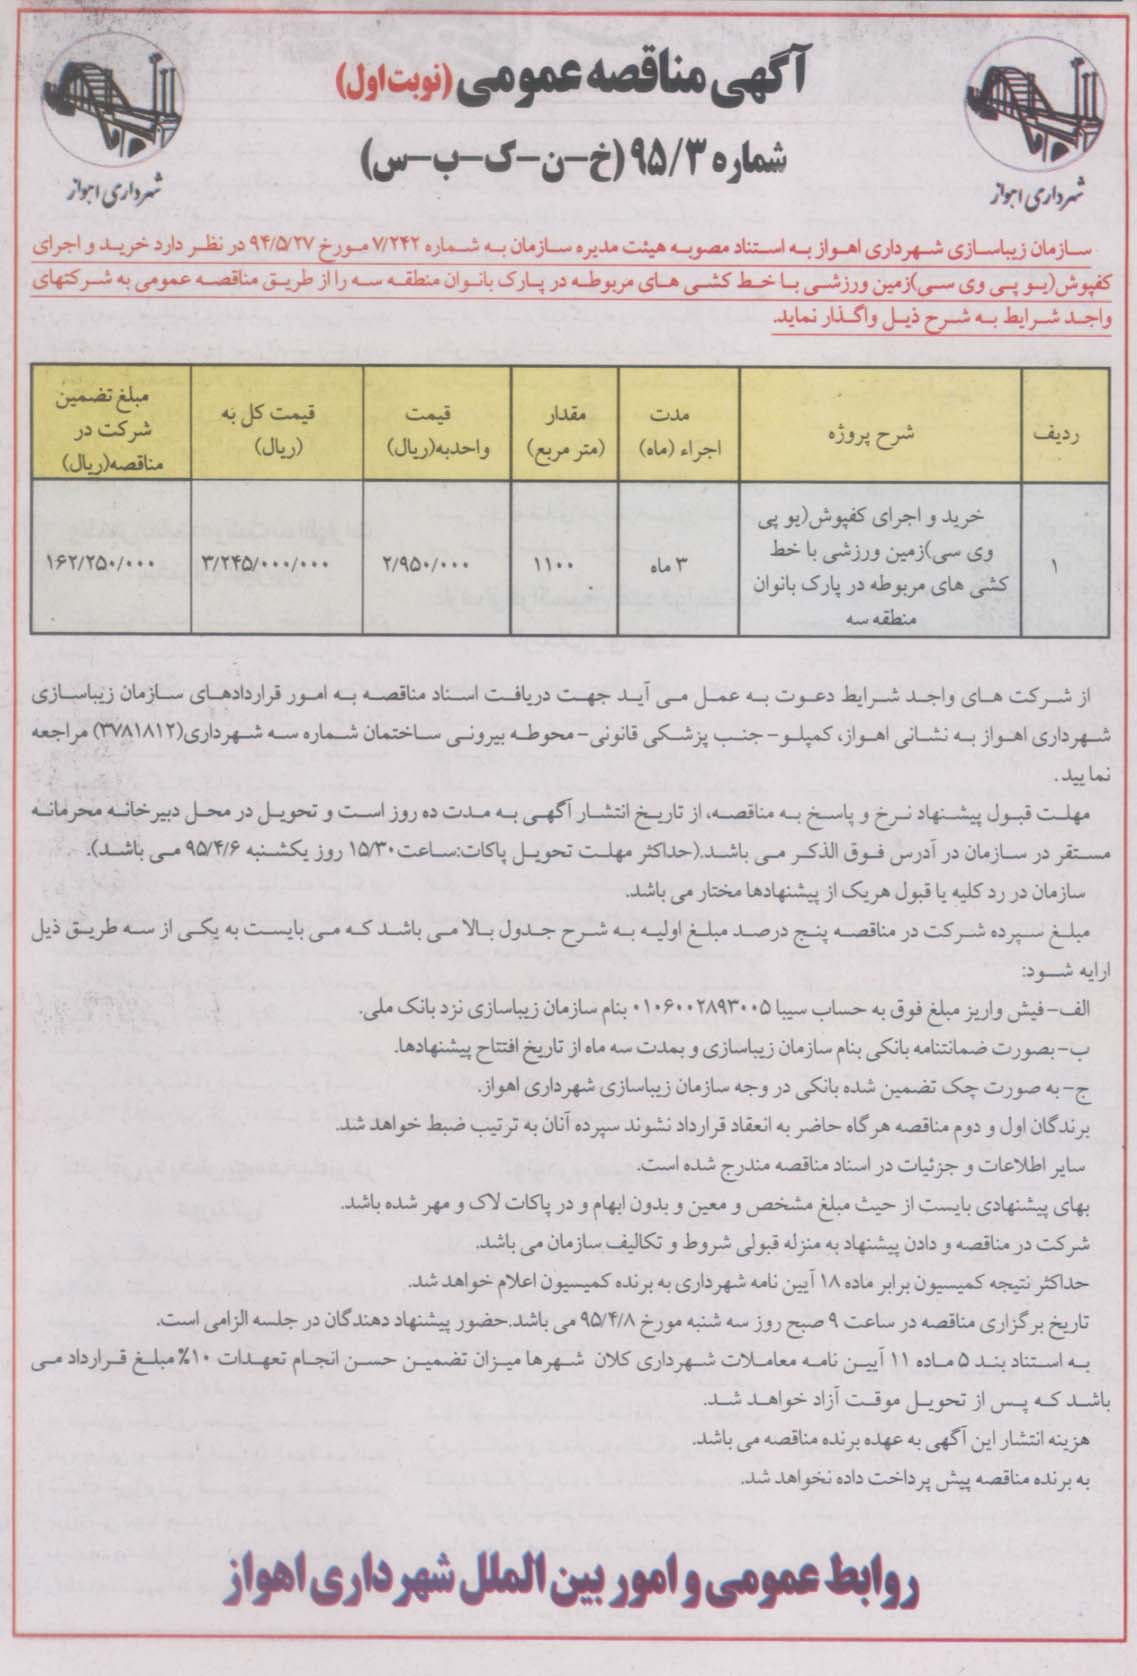 آگهی مناقصه عمومی (نوبت اول)
شماره ۹۵/۳ (خ-ن-ک-ب-س)
شهرداری اهواز
شهرداری اهواز
سازمان زیباسازی شهرداری اهواز به استناد مصوبه هیئت مدیره سازمان به شماره ۷/۲۴۲ مورخ ۹۴/۵/۲۷ در نظر دارد خرید و اجرای
کفپوش(یو پی وی سی)زمین ورزشی با خط کشی های مربوطه در پارک بانوان منطقه سه را از طریق مناقصه عمومی به شرکتهای
واجد شرایط به شرح ذیل واگذار نماید.
ردیف
شرح پروژه
مدت
اجراء (ماه)
مقدار
(متر مربع)
قیمت
واحدبه(ریال)
قیمت کل به
(ریال)
مبلغ تضمین
شرکت در
مناقصه(ریال)
۱
خرید و اجرای کفپوش(یو پی
وی سی)زمین ورزشی با خط
کشی های مربوطه در پارک بانوان
منطقه سه
۳ ماه
۱۱۰۰
۲/۹۵۰/۰۰۰
۳/۲۴۵/۰۰۰/۰۰۰
۱۶۲/۲۵۰/۰۰۰
از شرکت های واجد شرایط دعوت به عمل می آید جهت دریافت اسناد مناقصه به امور قراردادهای سازمان زیباسازی
شهرداری اهواز به نشانی اهواز، کمپلو- جنب پزشکی قانونی- محوطه بیرونی ساختمان شماره سه شهرداری(۳۷۸۱۸۱۲) مراجعه
نمایید.
مهلت قبول پیشنهاد نرخ و پاسخ به مناقصه، از تاریخ انتشار آگهی به مدت ده روز است و تحویل در محل دبیرخانه محرمانه
مستقر در سازمان در آدرس فوق الذکر می باشد.(حداکثر مهلت تحویل پاکات:ساعت۱۵/۳۰ روز یکشنبه ۹۵/۴/۶ می باشد).
سازمان در رد کلیه یا قبول هریک از پیشنهادها مختار می باشد.
مبلغ سپرده شرکت در مناقصه پنج درصد مبلغ اولیه به شرح جدول بالا می باشد که می بایست به یکی از سه طریق ذیل
ارایه شود:
الف- فیش واریز مبلغ فوق به حساب سیبا ۰۱۰۶۰۰۲۸۹۳۰۰۵ بنام سازمان زیباسازی نزد بانک ملی.
ب- بصورت ضمانتنامه بانکی بنام سازمان زیباسازی و بمدت سه ماه از تاریخ افتتاح پیشنهادها.
ج- به صورت چک تضمین شده بانکی در وجه سازمان زیباسازی شهرداری اهواز.
برندگان اول و دوم مناقصه هرگاه حاضر به انعقاد قرارداد نشوند سپرده آنان به ترتیب ضبط خواهد شد.
سایر اطلاعات و جزئیات در اسناد مناقصه مندرج شده است.
بهای پیشنهادی بایست از حیث مبلغ مشخص و معین و بدون ابهام و در پاکات لاک و مهر شده باشد.
شرکت در مناقصه و دادن پیشنهاد به منزله قبولی شروط و تکالیف سازمان می باشد.
حداکثر نتیجه کمیسیون برابر ماده ۱۸ آیین نامه شهرداری به برنده کمیسیون اعلام خواهد شد.
تاریخ برگزاری مناقصه در ساعت ۹ صبح روز سه شنبه مورخ ۹۵/۴/۸ می باشد.حضور پیشنهاد دهندگان در جلسه الزامی است.
به استناد بند ۵ ماده ۱۱ آیین نامه معاملات شهرداری کلان شهرها میزان تضمین حسن انجام تعهدات ۱۰% مبلغ قرارداد می
باشد که پس از تحویل موقت آزاد خواهد شد.
هزینه انتشار این آگهی به عهده برنده مناقصه می باشد.
به برنده مناقصه پیش پرداخت داده نخواهد شد.
روابط عمومی و امور بین الملل شهرداری اهواز